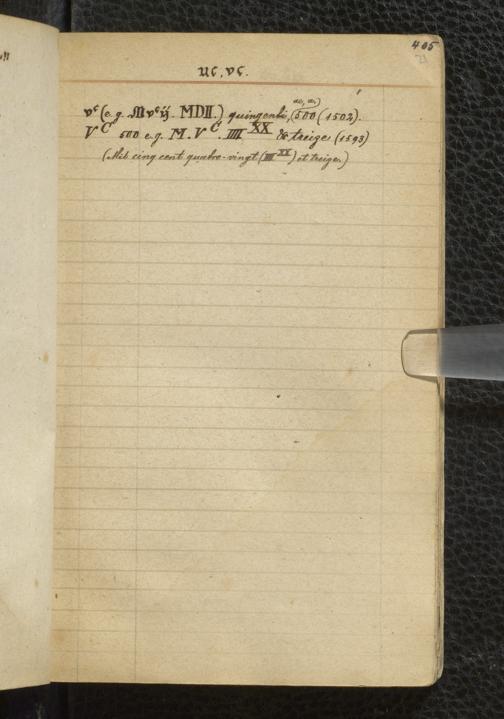 405
uc, vc.
vᶜ (e.g. M vᶜ ij. MDII.) quingenti, 500 (1502).
Vᶜ 500 e.g. M. Vᶜ. IIIIˣˣ & treize (1593)
(Mil cinq cent quatre-vingt (IIIIˣˣ) et treize.)